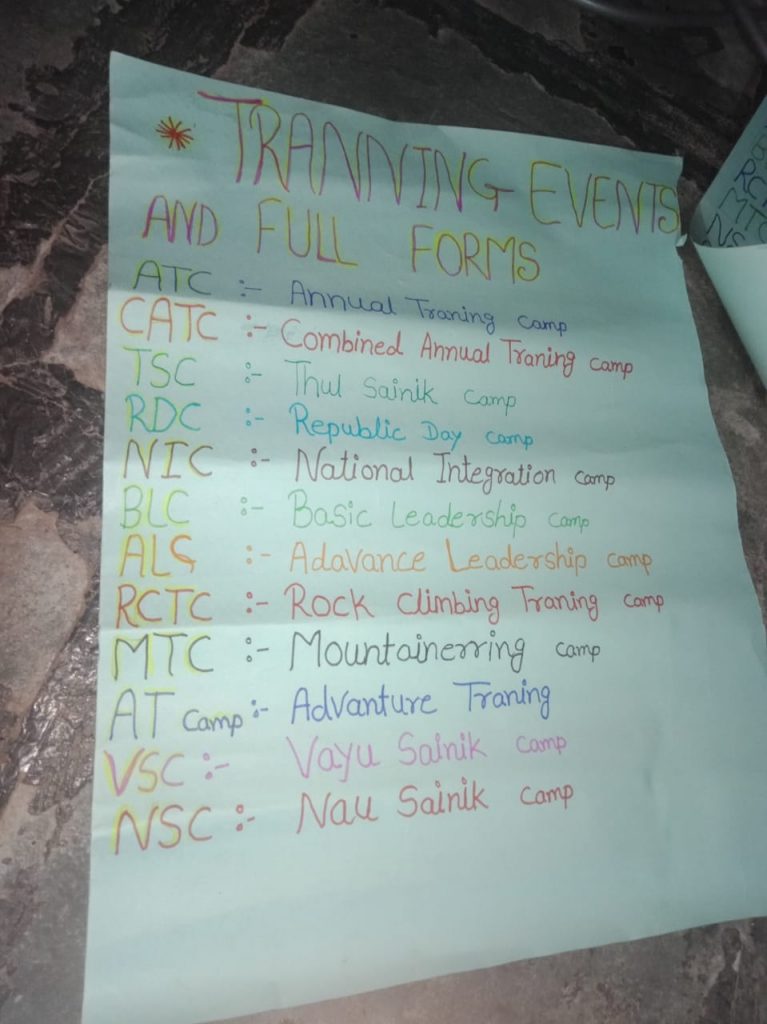 * TRANNING EVENTS
AND FULL FORMS
ATC :- Annual Traning Camp
CATC :- Combined Annual Traning Camp
TSC :- Thul Sainik Camp
RDC :- Republic Day Camp
NIC :- National Integration Camp
BLC :- Basic Leadership Camp
ALC :- Adavance Leadership Camp
RCTC :- Rock Climbing Traning Camp
MTC :- Mountainerring Camp
AT Camp :- Advanture Traning
VSC :- Vayu Sainik Camp
NSC :- Nau Sainik Camp